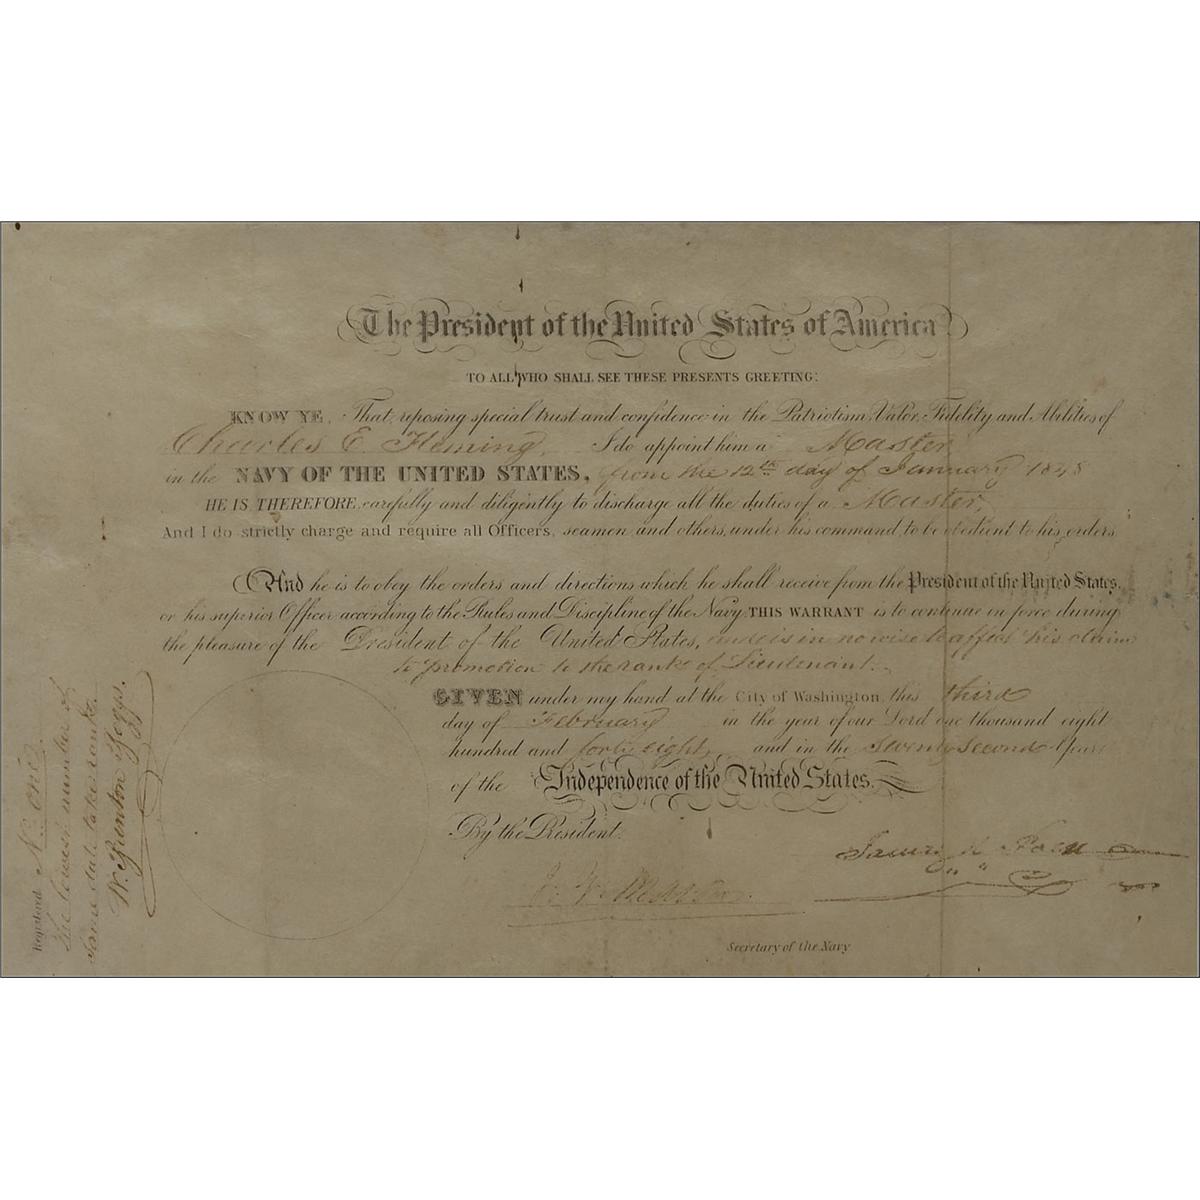 The President of the United States of America
TO ALL WHO SHALL SEE THESE PRESENTS GREETING:
KNOW YE, That reposing special trust and confidence in the Patriotism, Valor, Fidelity and Abilities of
Charles E. Fleming, I do appoint him a Master
in the NAVY OF THE UNITED STATES, from the 12th day of January 1848
HE IS THEREFORE carefully and diligently to discharge all the duties of a Master,
And I do strictly charge and require all Officers, seamen and others, under his command, to be obedient to his orders
And he is to obey the orders and directions which he shall receive from the President of the United States,
or his superior Officer according to the Rules and Discipline of the Navy. THIS WARRANT is to continue in force during
the pleasure of the President of the United States, and is in no wise to affect his claim
to promotion to the rank of Lieutenant.
GIVEN under my hand at the City of Washington, this third
day of February in the year of our Lord one thousand eight
hundred and forty eight, and in the Seventy Second Year
of the Independence of the United States.
By the President.
James K Polk
J. Y. Mason
Secretary of the Navy
Registered No. one.
The lowest number of
same date takes rank.